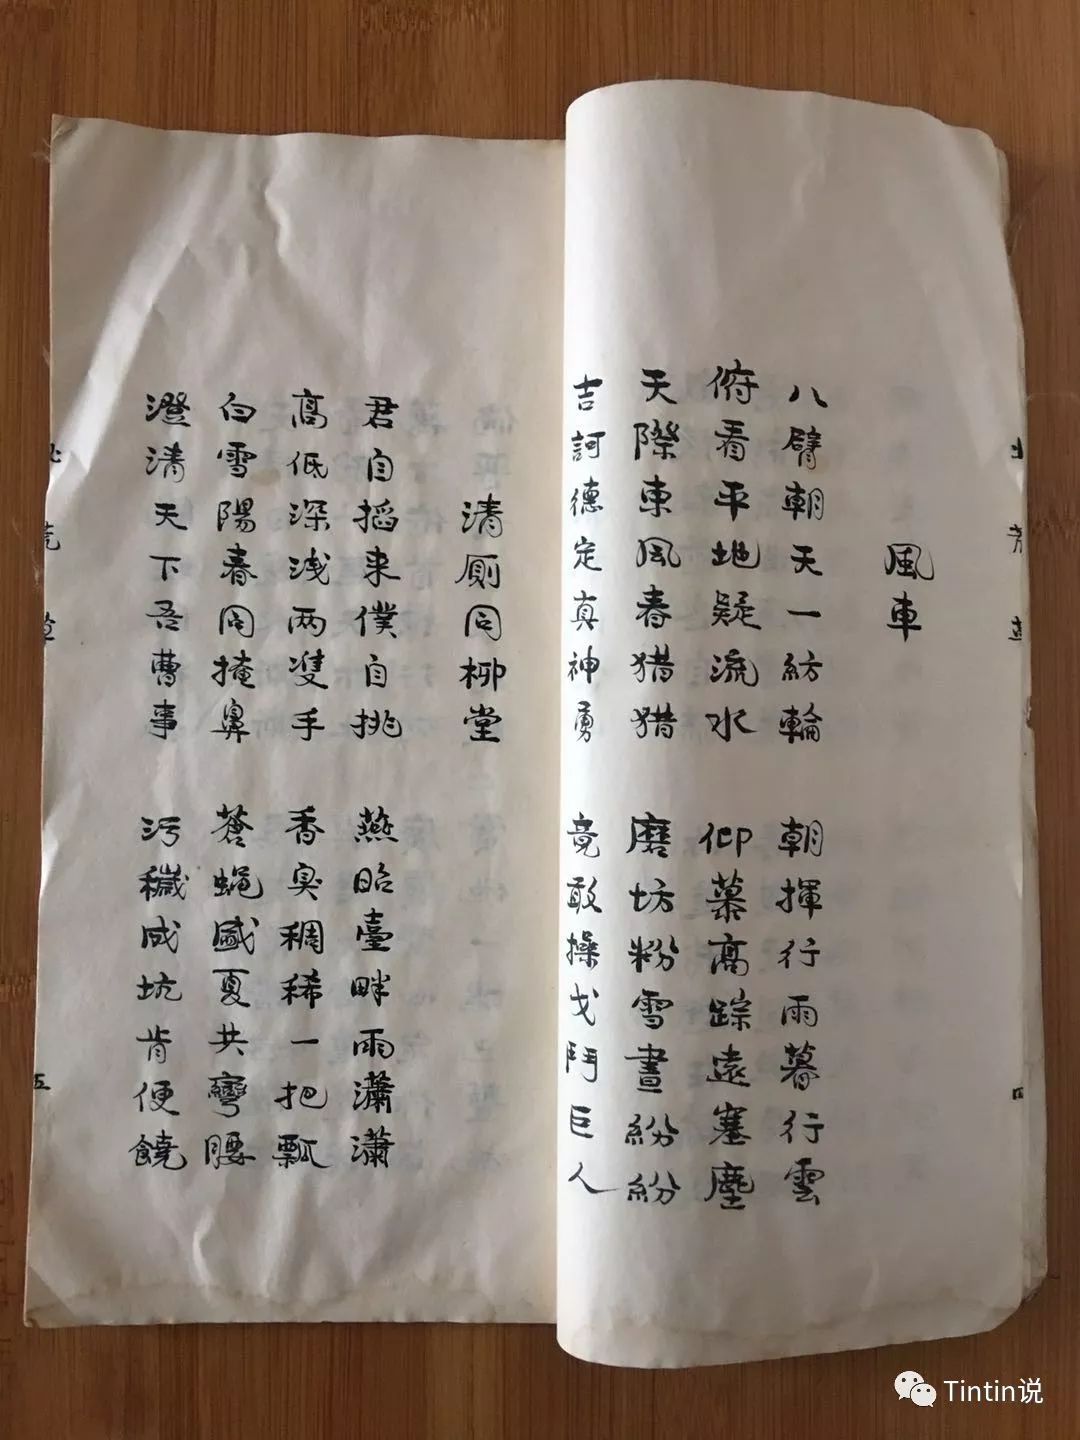 風車
八臂朝天一紡輪 朝揮行雨暮行雲
俯看平地疑流水 仰慕高踪遠塞塵
天際東風春猎猎 磨坊粉雪晝紛紛
吉訶德定真神勇 竟敢操戈鬥巨人
四
清厕同柳堂
君自掏来僕自挑 燕昭臺畔雨瀟瀟
高低深浅两雙手 香臭稠稀一把瓢
白雪陽春同掩鼻 蒼蝇盛夏共彎腰
澄清天下吾曹事 污穢成坑肯便饒
五
Tintin说